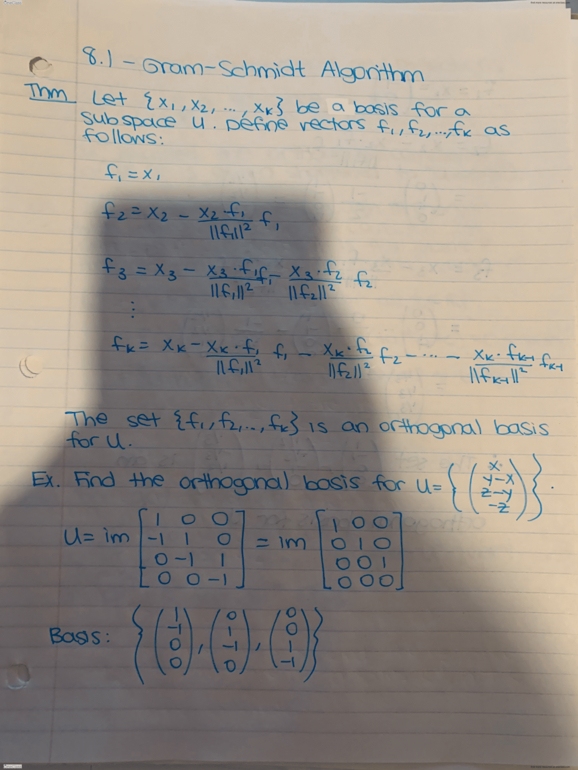 8.1 - Gram-Schmidt Algorithm
Thm Let {x₁, x₂, ..., xₖ} be a basis for a
subspace U. Define vectors f₁, f₂, ..., fₖ as
follows:
f₁ = x₁
f₂ = x₂ - (x₂·f₁)/||f₁||² f₁
f₃ = x₃ - (x₃·f₁)/||f₁||² f₁ - (x₃·f₂)/||f₂||² f₂
⋮
fₖ = xₖ - (xₖ·f₁)/||f₁||² f₁ - (xₖ·f₂)/||f₂||² f₂ - ... - (xₖ·fₖ₋₁)/||fₖ₋₁||² fₖ₋₁
The set {f₁, f₂, ..., fₖ} is an orthogonal basis
for U.
Ex. Find the orthogonal basis for U = {(x, y-x, z-y, -z)}.
U = im [1 0 0; -1 1 0; 0 -1 1; 0 0 -1] = im [1 0 0; 0 1 0; 0 0 1; 0 0 0]
Basis: {(1, -1, 0, 0), (0, 1, -1, 0), (0, 0, 1, -1)}